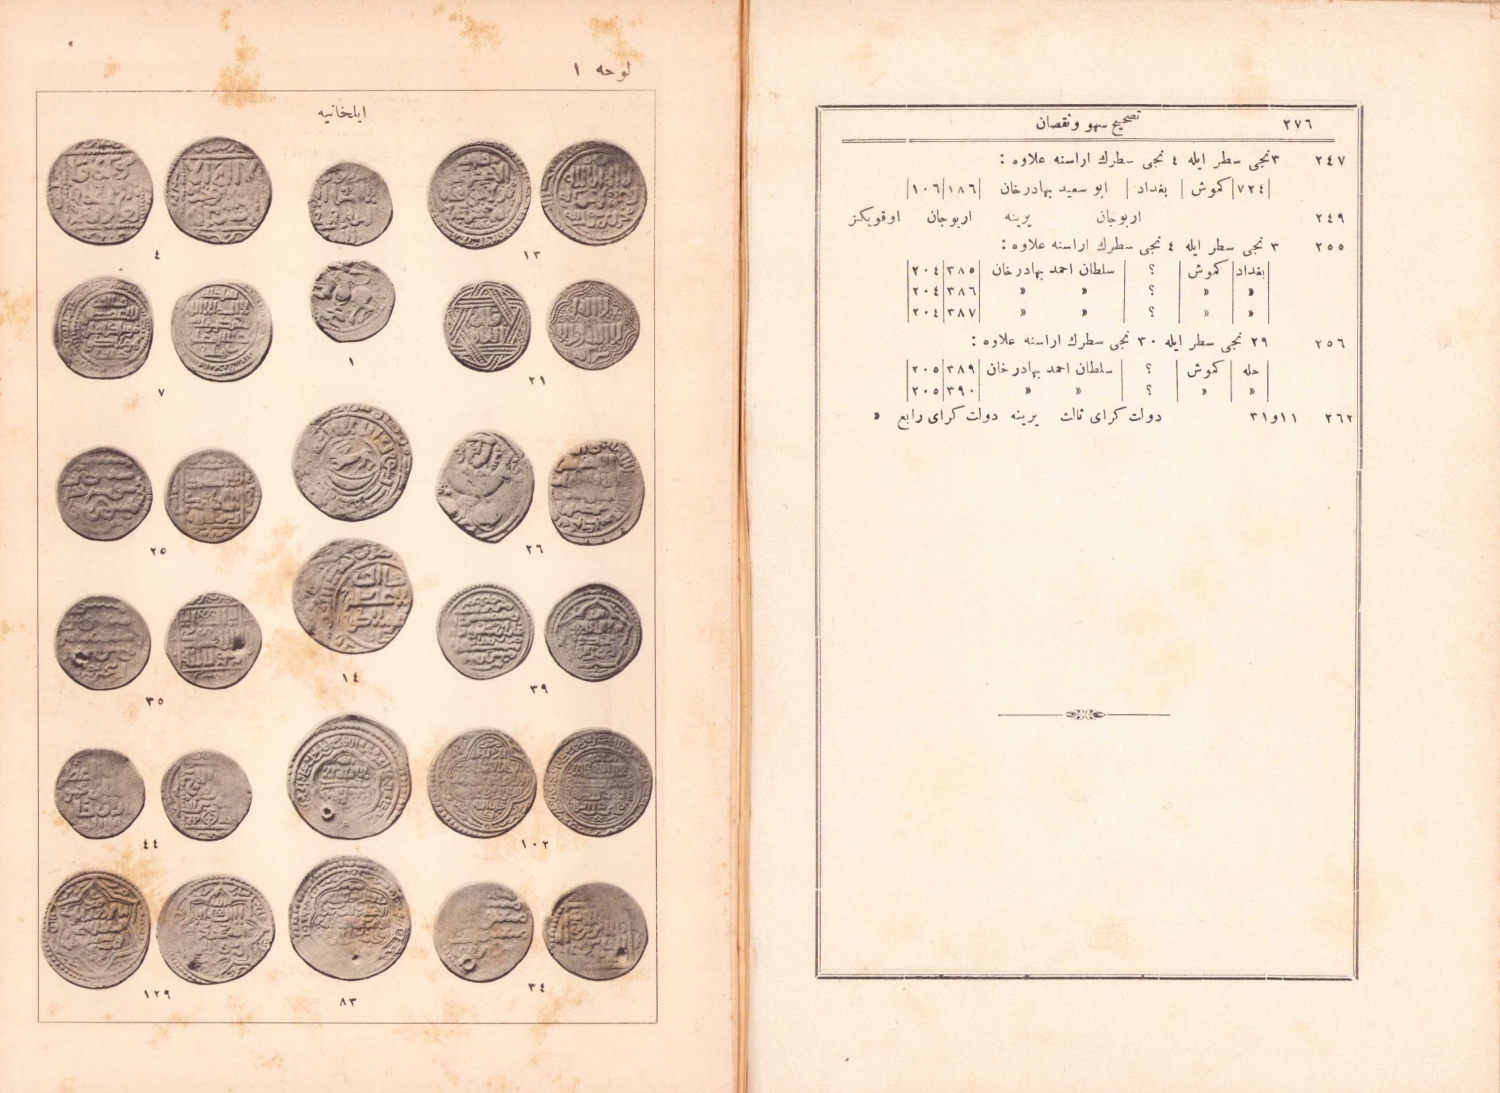 ٢٧٦ تصحيح سهو ونقصان
٢٤٧ ٣نجى سطر ايله ٤ نجى سطرك اراسنه علاوه :
٧٢٤ كموش بغداد ابو سعيد بهادرخان ١٨٦ ١٠٦
٢٤٩ اربوجان يرينه اربوجان اوقويكز
٢٥٥ ٣ نجى سطر ايله ٤ نجى سطرك اراسنه علاوه :
بغداد كموش ؟ سلطان احمد بهادرخان ٣٨٥ ٢٠٤
» » ؟ » » ٣٨٦ ٢٠٤
» » ؟ » » ٣٨٧ ٢٠٤
٢٥٦ ٢٩ نجى سطر ايله ٣٠ نجى سطرك اراسنه علاوه :
حله كموش ؟ سلطان احمد بهادرخان ٣٨٩ ٢٠٥
» » ؟ » » ٣٩٠ ٢٠٥
٢٦٢ ١١و٣١ دولت كراى ثالث يرينه دولت كراى رابع »
لوحه ١
ايلخانيه
١٣
٤
٢١
١
٧
٢٦
٢٥
٣٩
١٤
٣٥
١٠٢
٤٤
٣٤
٨٣
١٢٩